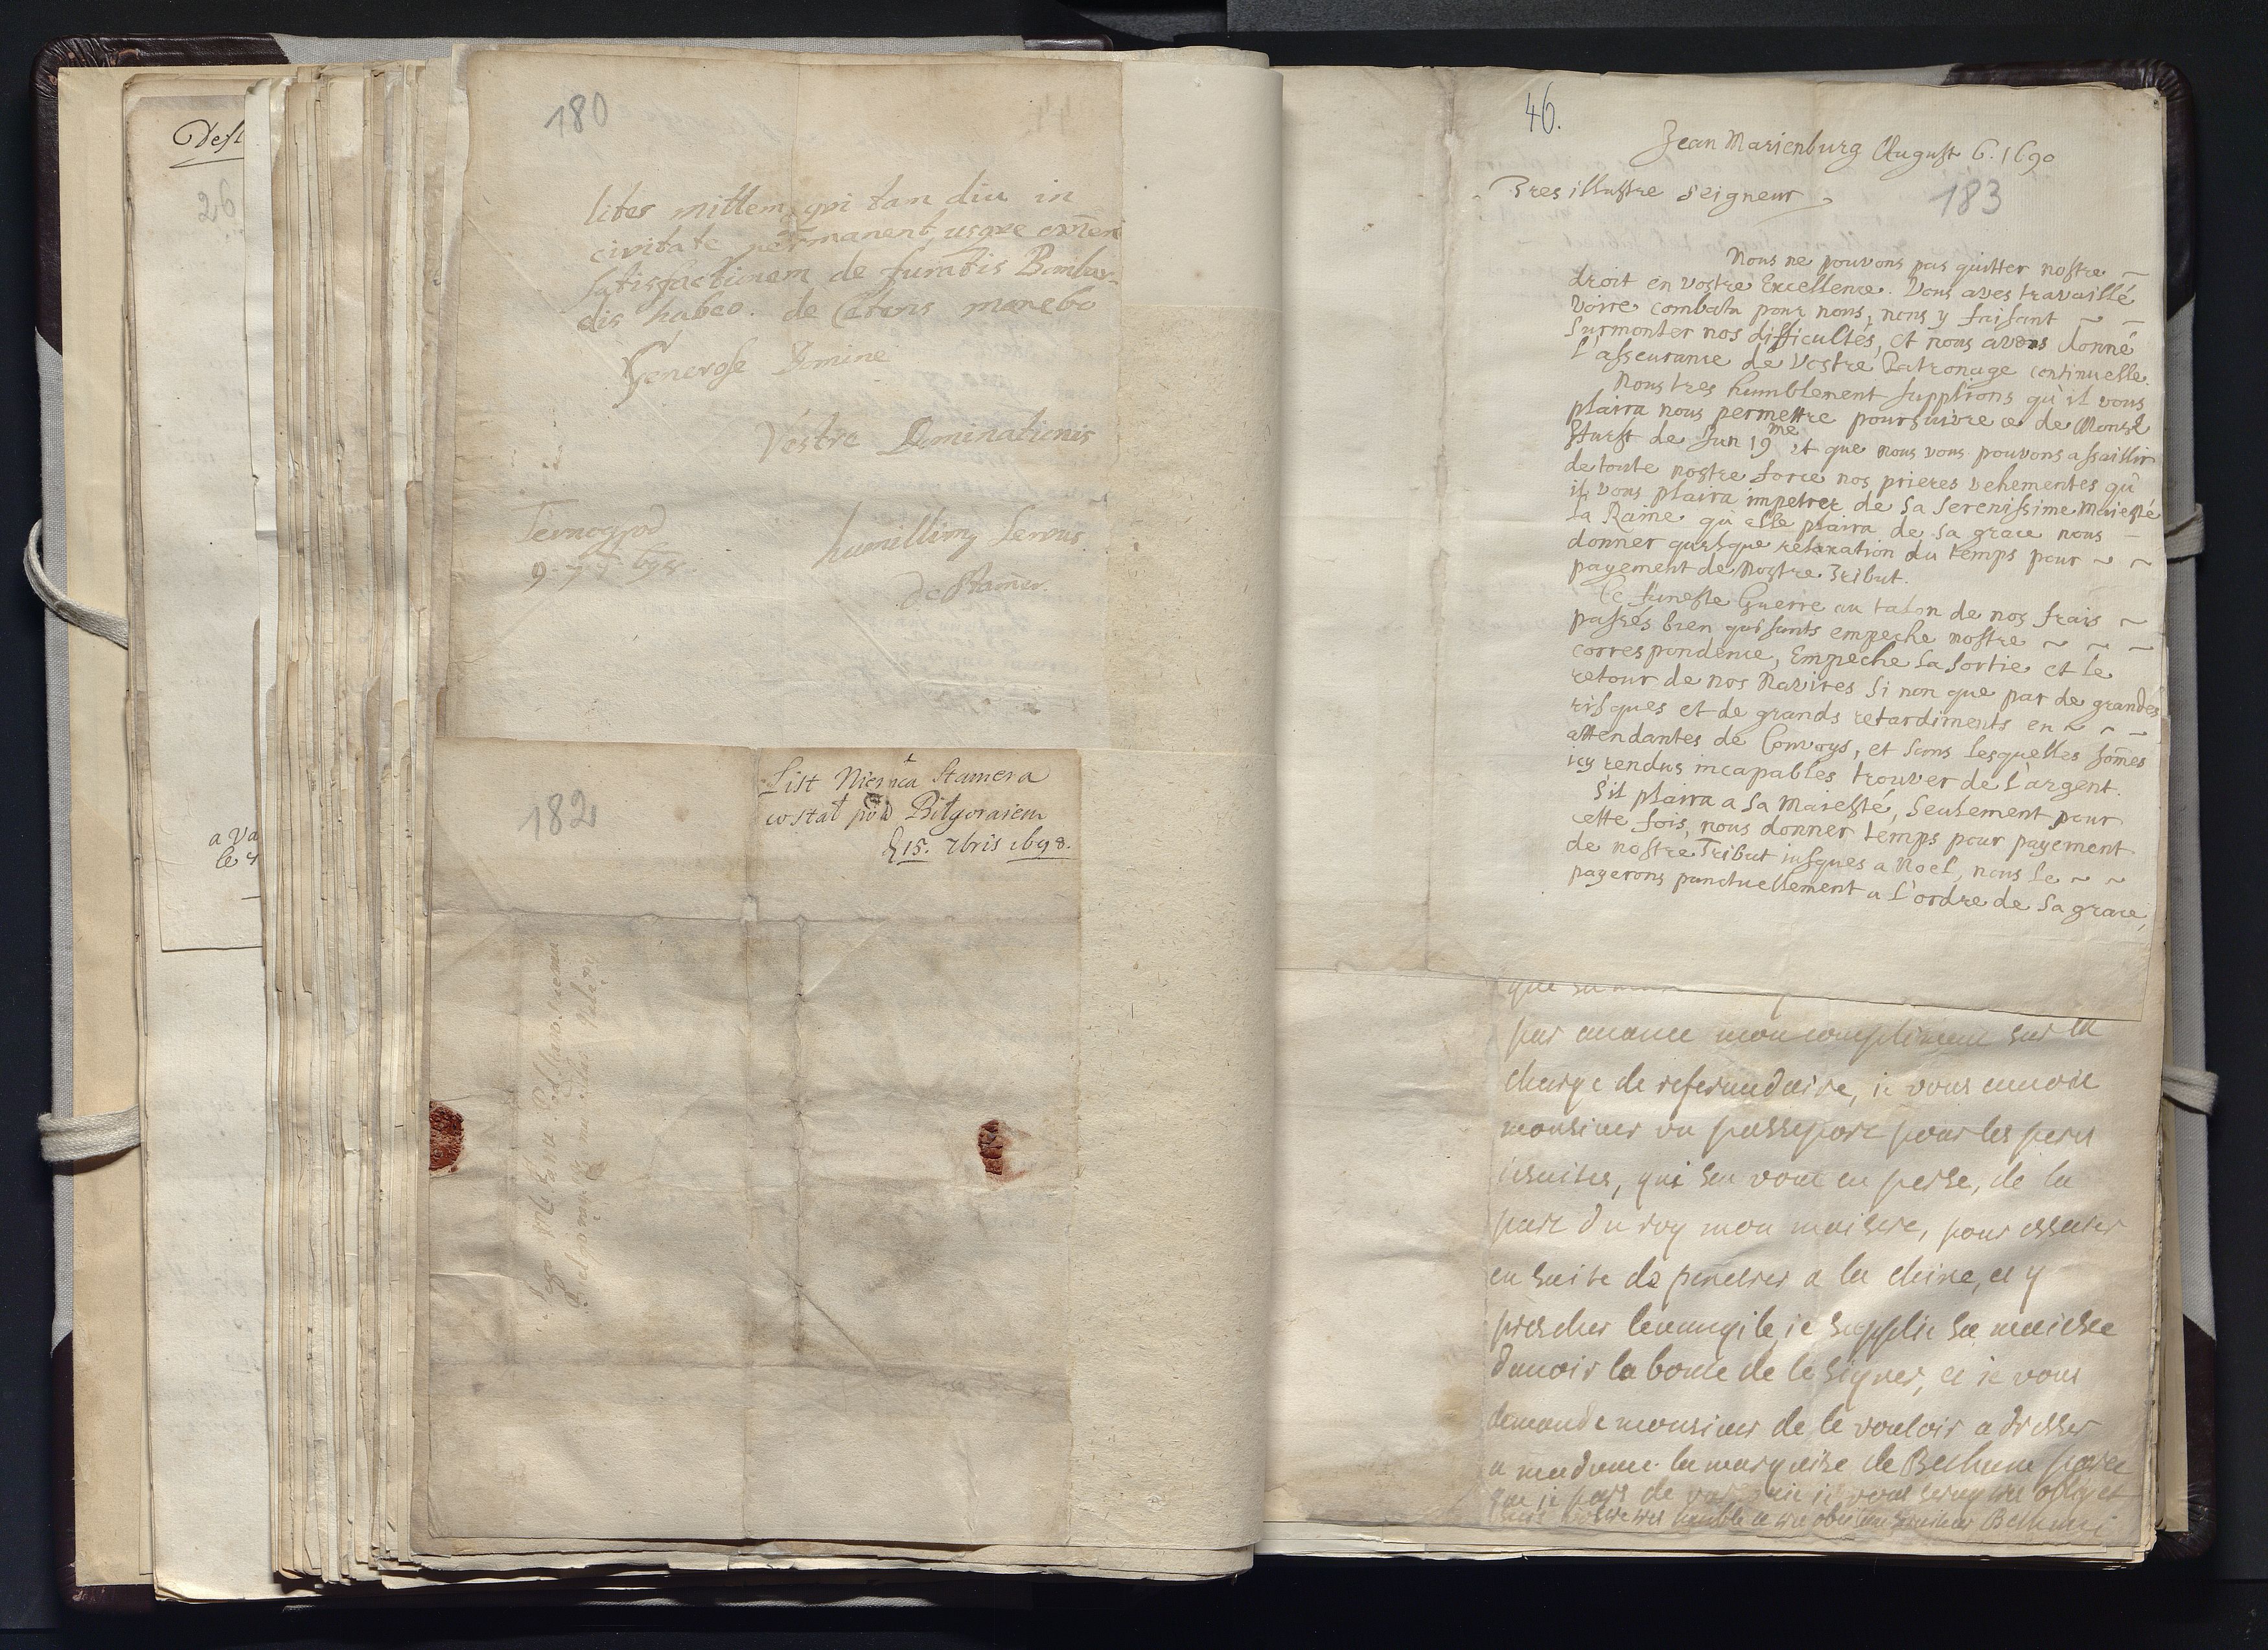 Dest
26
a Va
le 4
180
lites mittem, qui tam diu in
civitate permanent, usque omnem
satisfactionem de furatis Bombar-
dis habeo. de Ceteris manebo
Generose Domine
Vestre Dominationis
humillimg Servus
de Stamer.
182
List Niemca Stamera
costał pod Biłgoraiem
15. 7bris 1698.
46.
Jean Marienburg August 6. 1690
183
Tres illustre Seigneur
Nous ne pouvons pas quitter nostre ~
droit en vostre Excellence. Vous aves travaillé
voire combatu pour nous, nous y faisant ~ ~
surmonter nos difficultés, et nous avons donné
l'asseurance de vostre Patronage continuelle.
Nous tres humblement supplions qu'il vous
plaira nous permettre poursuivre ce de Monsr
Hurst de Jun 19me et que nous vous pouvons assaillir
de toute nostre force nos prieres vehementes qu'
il vous plaira impetrer de Sa Serenissime Maiesté
la Raine qu'elle plaira de sa grace nous ~
donner quelque relaxation du temps pour ~ ~
payement de nostre Tribut.
Ce funeste Guerre au talon de nos frais ~
passés bien quisants empeche nostre ~ ~ ~
correspondence, Empeche la sortie et le
retour de nos Navires si non que par de grandes
risques et de grands retardiments en ~ ~ ~
attendantes de Convoys, et sans lesquelles som̃es
icy rendus incapables trouver de l'argent.
S'il plaira a Sa Maiesté, seulement pour
cette fois, nous donner temps pour payement
de nostre Tribut iusques a Noel, nous le ~ ~
payerons punctuellement a l'ordre de Sa grace,
que sa
par auance mon compliment sur la
charge de referendaire, ie vous enuoie
monsieur un passeport pour les peres
iesuites, qui sen vont en perse, de la
part du roy mon maistre, pour essaier
en suite de penetrer a la chine, et y
prescher leuangile, ie supplie sa maieste
dauoir la bonte de le signer, et ie vous
demande monsieur de le vouloir adresser
a madame la marquise de Bethune parce
que ie pars de ie vous seray tres oblige et
vostre tres humble et tres obeissant seruiteur Bethune